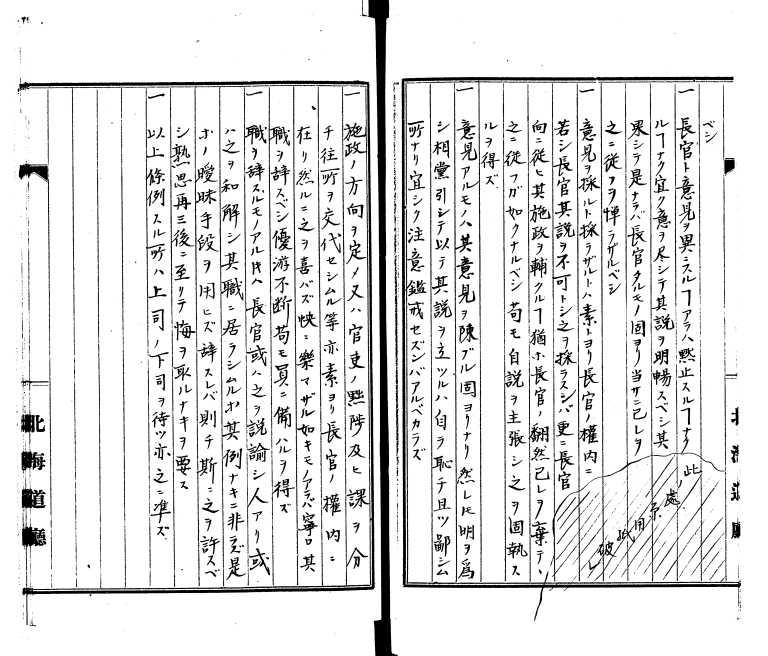 ベシ
一長官ト意見ヲ異ニスルヿアラハ黙止スルヿナク
ルヿナク宜ク意ヲ尽シテ其説ヲ明暢スベシ其
果シテ是ナラバ長官タルモノ固ヨリ当サニ己レヲ
之ニ従フヲ憚ラザルベシ
一意見ヲ採ルト採ラザルトハ素トヨリ長官ノ權内ニ
若シ長官其説ヲ不可トシ之ヲ採ラスンバ更ニ長官
向ニ從ヒ其施政ヲ輔クルヿ猶ホ長官ノ翻然己レヲ棄テヽ
之ニ從フガ如クナルベシ苟モ自説ヲ主張シ之ヲ固執ス
ルヲ得ズ
一意見アルモノハ其意見ヲ陳ブル固ヨリナリ然レ𪜈明ヲ爲
シ相黨引シテ以テ其説ヲ立ツルハ自ラ恥チ且ツ鄙シム
所ナリ宜シク注意鑑戒セズンバアルベカラズ
此ノ處原用紙破レ
北海道廳
一施政ノ方向ヲ定メ又ハ官吏ノ黜陟及ヒ課ヲ分
チ往所ヲ交代セシムル等亦素ヨリ長官ノ權内ニ
在リ然ルニ之ヲ喜バズ怏々樂マザル如キモノアラバ寧ロ其
職ヲ辞スベシ優游不断苟モ員ニ備ハルヲ得ズ
一職ヲ辞スルモノアル𪜈長官或ハ之ヲ説諭シ人アリ或
ハ之ヲ和解シ其職ニ居ラシムル等其例ナキニ非ラズ是
等ノ曖昧手段ヲ用ヒズ辞スレバ則チ斯ニ之ヲ許スベ
シ熟思再三後ニ至リテ悔ヲ取ルナキヲ要ス
一以上條例スル所ハ上司ノ下司ヲ待ツ亦之ニ準ズ
一
北海道廳